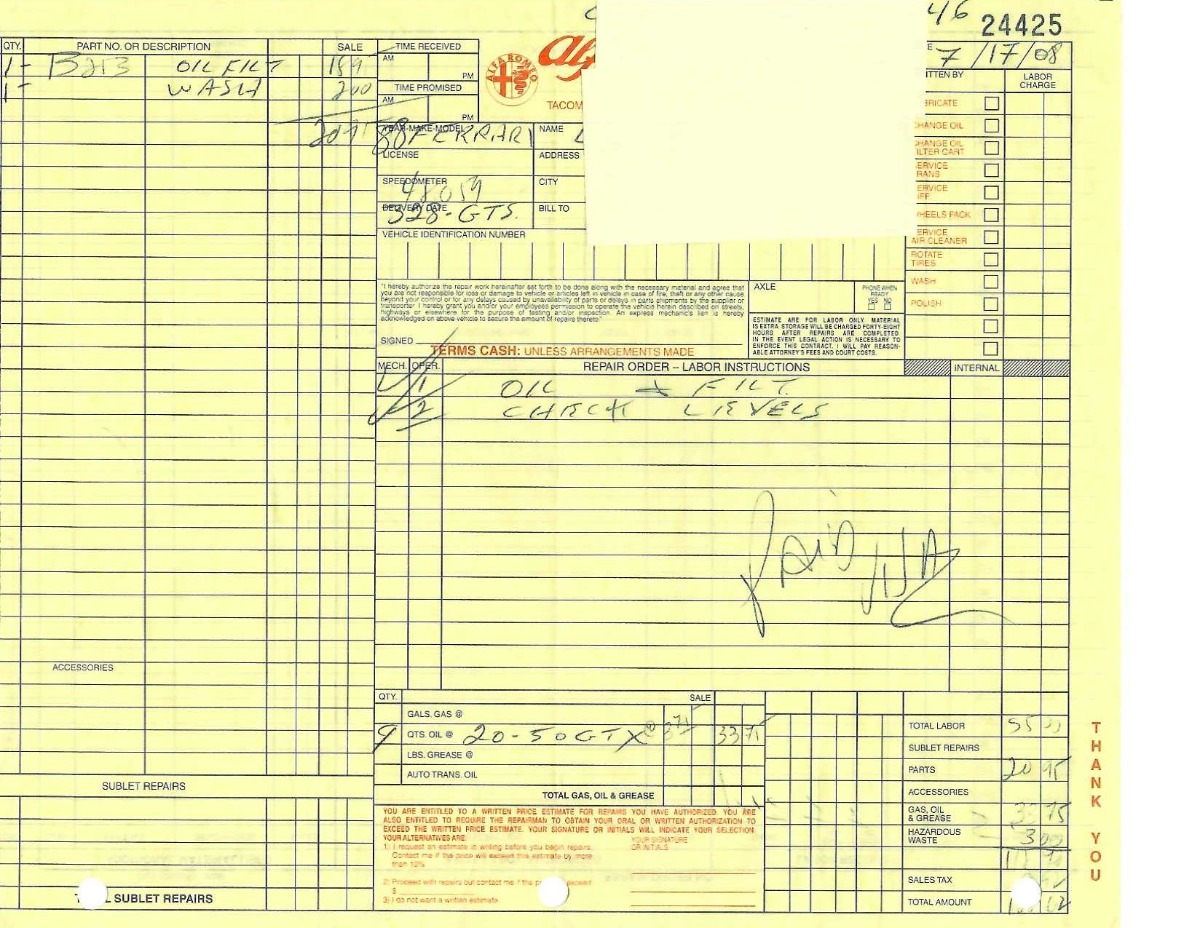 46 24425
7/17/08
QTY. PART NO. OR DESCRIPTION SALE
1- B213 OIL FILT
1- WASH 200
TIME RECEIVED
AM
PM
TIME PROMISED
AM
PM
ALFA ROMEO
TACOM
YEAR-MAKE-MODEL
88 FERRARI
NAME
LICENSE
ADDRESS
SPEEDOMETER
CITY
DELIVERY DATE
328-GTS.
BILL TO
VEHICLE IDENTIFICATION NUMBER
ITTEN BY
LABOR CHARGE
BRICATE
HANGE OIL
HANGE OIL
ILTER CART
ERVICE
RANS
ERVICE
IFF
HEELS PACK
ERVICE
AIR CLEANER
ROTATE
TIRES
WASH
POLISH
"I hereby authorize the repair work hereinafter set forth to be done along with the necessary material and agree that
you are not responsible for loss or damage to vehicle or articles left in vehicle in case of fire, theft or any other cause
beyond your control or for any delays caused by unavailability of parts or delays in parts shipments by the supplier or
transporter. I hereby grant you and/or your employees permission to operate the vehicle herein described on streets,
highways or elsewhere for the purpose of testing and/or inspection. An express mechanic's lien is hereby
acknowledged on above vehicle to secure the amount of repairs thereto."
AXLE
PHONE WHEN
READY
YES NO
ESTIMATE ARE FOR LABOR ONLY MATERIAL
IS EXTRA STORAGE WILL BE CHARGED FORTY-EIGHT
HOURS AFTER REPAIRS ARE COMPLETED.
IN THE EVENT LEGAL ACTION IS NECESSARY TO
ENFORCE THIS CONTRACT, I WILL PAY REASON-
ABLE ATTORNEY'S FEES AND COURT COSTS.
SIGNED
TERMS CASH: UNLESS ARRANGEMENTS MADE
MECH. OPER. REPAIR ORDER – LABOR INSTRUCTIONS INTERNAL
1 OIL + FILT.
2 CHECK LEVELS
Paid
ACCESSORIES
SUBLET REPAIRS
SUBLET REPAIRS
QTY. SALE
GALS. GAS @
9 QTS. OIL @ 20-50 GTX @ 3 75 33 75
LBS. GREASE @
AUTO TRANS. OIL
TOTAL GAS, OIL & GREASE
YOU ARE ENTITLED TO A WRITTEN PRICE ESTIMATE FOR REPAIRS YOU HAVE AUTHORIZED. YOU ARE
ALSO ENTITLED TO REQUIRE THE REPAIRMAN TO OBTAIN YOUR ORAL OR WRITTEN AUTHORIZATION TO
EXCEED THE WRITTEN PRICE ESTIMATE. YOUR SIGNATURE OR INITIALS WILL INDICATE YOUR SELECTION.
YOUR ALTERNATIVES ARE:
YOUR SIGNATURE
OR INITIALS
1) I request an estimate in writing before you begin repairs.
Contact me if the price will exceed this estimate by more
than 10%
2) Proceed with repairs but contact me if the
$
3) I do not want a written estimate.
TOTAL LABOR 55
SUBLET REPAIRS
PARTS 20 95
ACCESSORIES
GAS, OIL
& GREASE 75
HAZARDOUS
WASTE 3 00
SALES TAX
TOTAL AMOUNT
THANK YOU